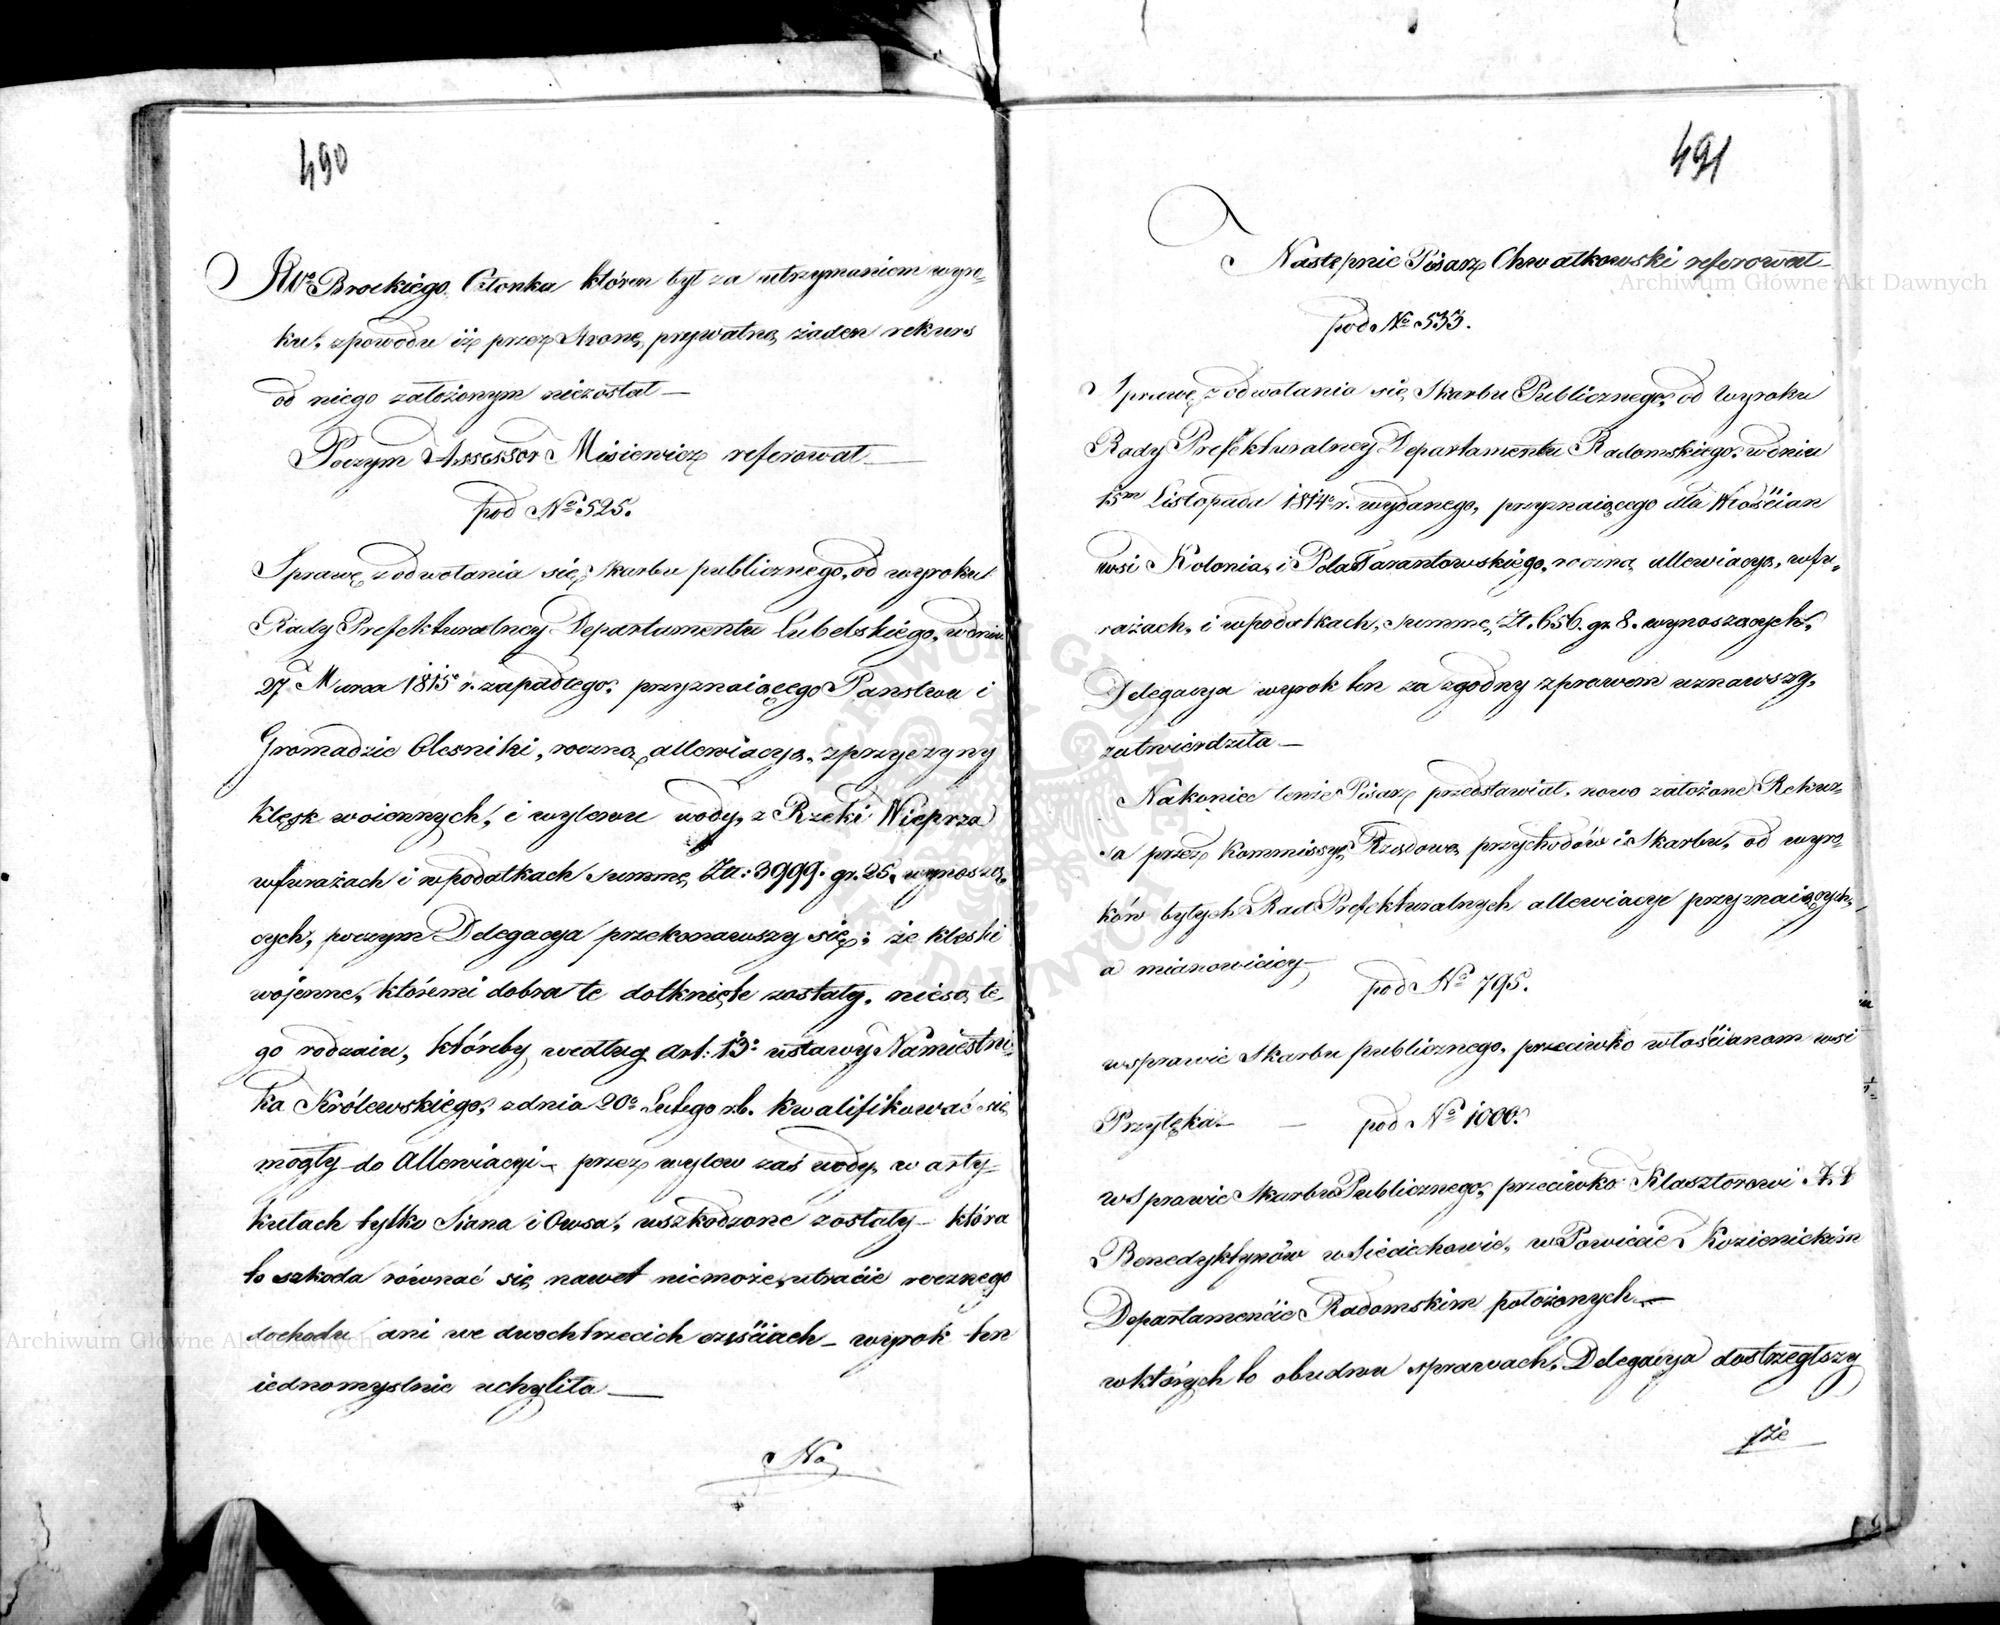 490
JWo Brockiego Członka któren był za utrzymaniem wyro=
ku, zpowodu iż przez Stronę prywatną żaden rekurs
od niego założonym niezostał —
Poczym Assessor Misiewicz referował —
pod No 525.
Sprawę zodwołania się Skarbu publicznego, od wyroku
Rady Prefekturalney Departamentu Lubelskiego, wdniu
27 Marca 1815o r. zapadłego, przyznaiącego Państwu i
Gromadzie Olesniki, roczną allewiacyą, zprzyczyny
klęsk woiennych, i wylewu wody, z Rzeki Wieprza
wfurażach i wpodatkach Summę Zł: 3999. gr. 25. wynoszą,
cych, poczym Delegacya przekonawszy się; że klęski
wojenne, któremi dobra te dotknięte zostały, niesą te,
go rodzaiu, któreby według Art: 13o ustawy Namiestni,
ka Królewskiego, zdnia 20o Lutego r.b. kwalifikować się
mogły do Allewiacyi — przez wylew zaś wody, w arty=
kułach tylko Siana i Owsa, uszkodzone zostały — która
to szkoda równać się nawet niemoże, utracie rocznego
dochodu ani we dwoch trzecich częściach — wyrok ten
iednomyslnie uchyliła —
Na
491
Następnie Pisarz Chwałkowski referował
pod No 533.
Sprawę zodwołania się Skarbu Publicznego, od Wyroku
Rady Prefekturalney Departamentu Radomskiego, wdniu
15m Listopada 1814o r. wydanego, przyznaiącego dla Włościan
wsi Kolonia, i Pola Tarantowskiego, roczną allewiacyą, wfu,
rażach, i wpodatkach, Summę Zł. 656. gr. 8. wynoszących,
Delegacya wyrok ten za zgodny zprawem uznawszy,
zatwierdziła —
Nakoniec tenże Pisarz przedstawiał, nowo założone Rekur=
sa przez Kommissyą Rządową przychodów i Skarbu, od wyro=
ków byłych Rad Prefekturalnych allewiacye przyznaiących,
a mianowiciey
pod No 795.
wsprawie Skarbu publicznego, przeciwko włościanom wsi
Przyłęka — — pod No 1000.
wSprawie Skarbu Publicznego, przeciwko Klasztorowi X. X
Benedyktynów wSieciechowie, w Powiecie Kozienickim
Departamencie Radomskim położonych —
wktórych to obudwu sprawach, Delegacya dostrzegłszy
że
Archiwum Główne Akt Dawnych
Archiwum Główne Akt Dawnych